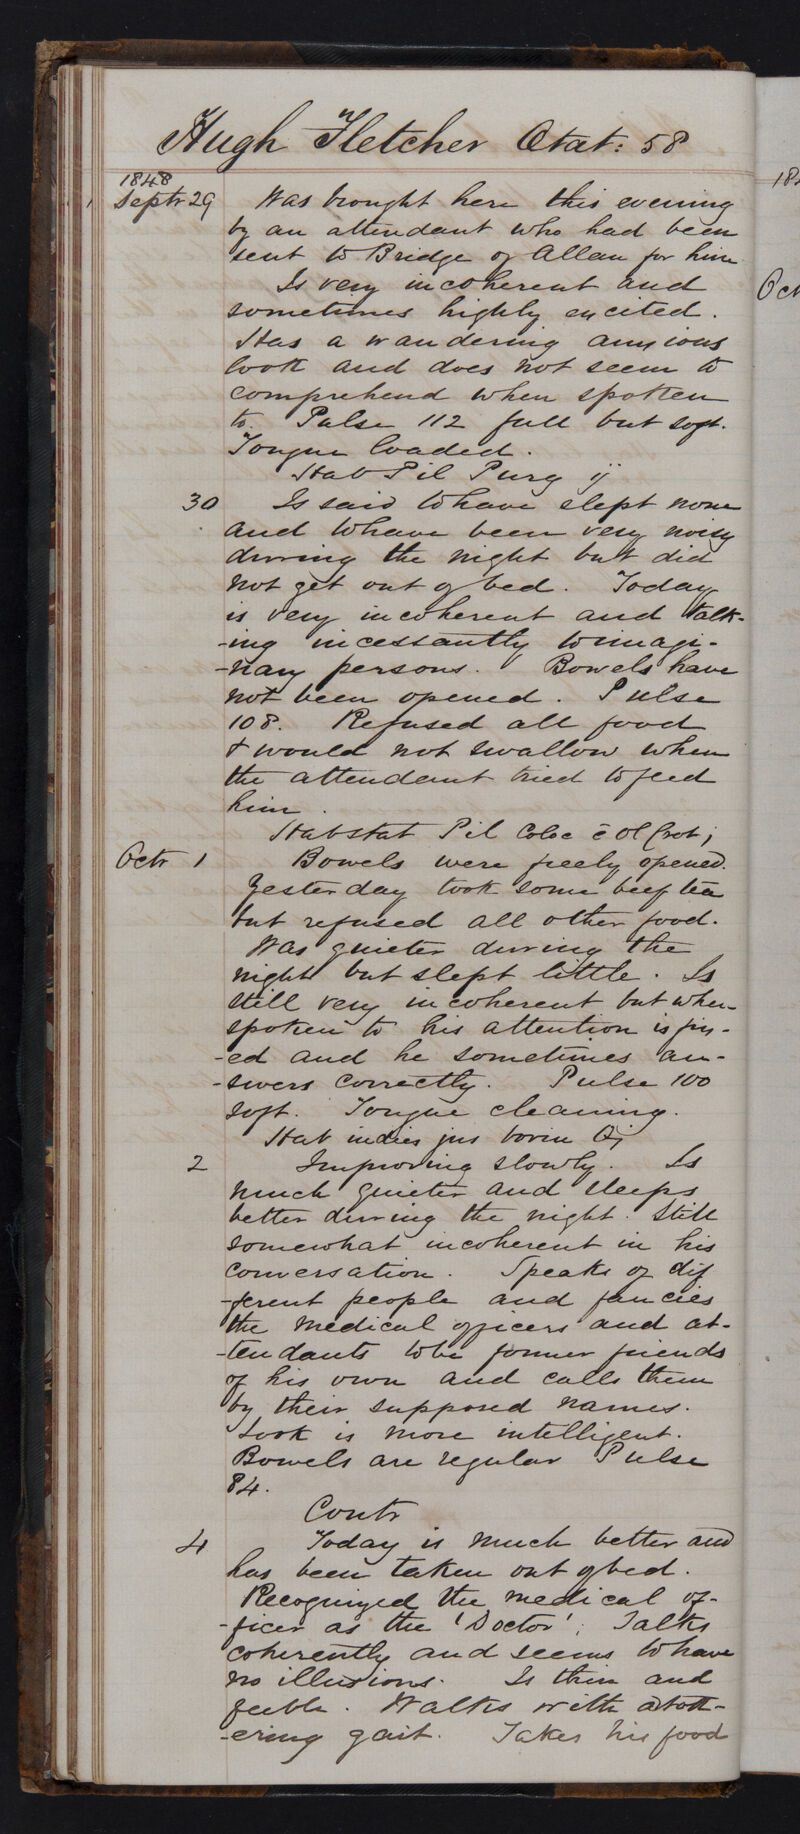 Hugh Fletcher Ætat: 58
1848
Septr 29 Was brought here this evening
by an attendant who had been
sent to Bridge of Allan for him
Is very incoherent and
sometimes highly excited.
Has a wandering anxious
look and does not seem to
comprehend when spoken
to. Pulse 112 full but soft.
Tongue loaded.
Hab Pil Purg ij
30 Is said to have slept none
and to have been very noisy
during the night but did
not get out of bed. Today
is very incoherent and talk-
-ing incessantly to imagi-
-nary persons. Bowels have
not been opened. Pulse
108. Refused all food
& would not swallow when
the attendant tried to feed
him.
Hab stat Pil Coloc c̄ Ol Crot j
Octr 1 Bowels were freely opened.
Yesterday took some beef tea
but refused all other food.
Was quieter during the
night but slept little. Is
still very incoherent but when
spoken to his attention is fix-
-ed and he sometimes an-
-swers correctly. Pulse 100
soft. Tongue cleaning.
Hab indies jus bovin
2 Improving slowly. Is
much quieter and sleeps
better during the night. Still
somewhat incoherent in his
conversation. Speaks of dif
-ferent people and fancies
the medical officers and at-
-tendants to be former friends
of his own and calls them
by their supposed names.
Look is more intelligent.
Bowels are regular Pulse
84.
Contr
4 Today is much better and
has been taken out of bed.
Recognized the medical of-
-ficer as the 'Doctor'. Talks
coherently and seems to have
no illusions. Is thin and
feeble. Walks with a tott-
-ering gait. Takes his food
184
Oct